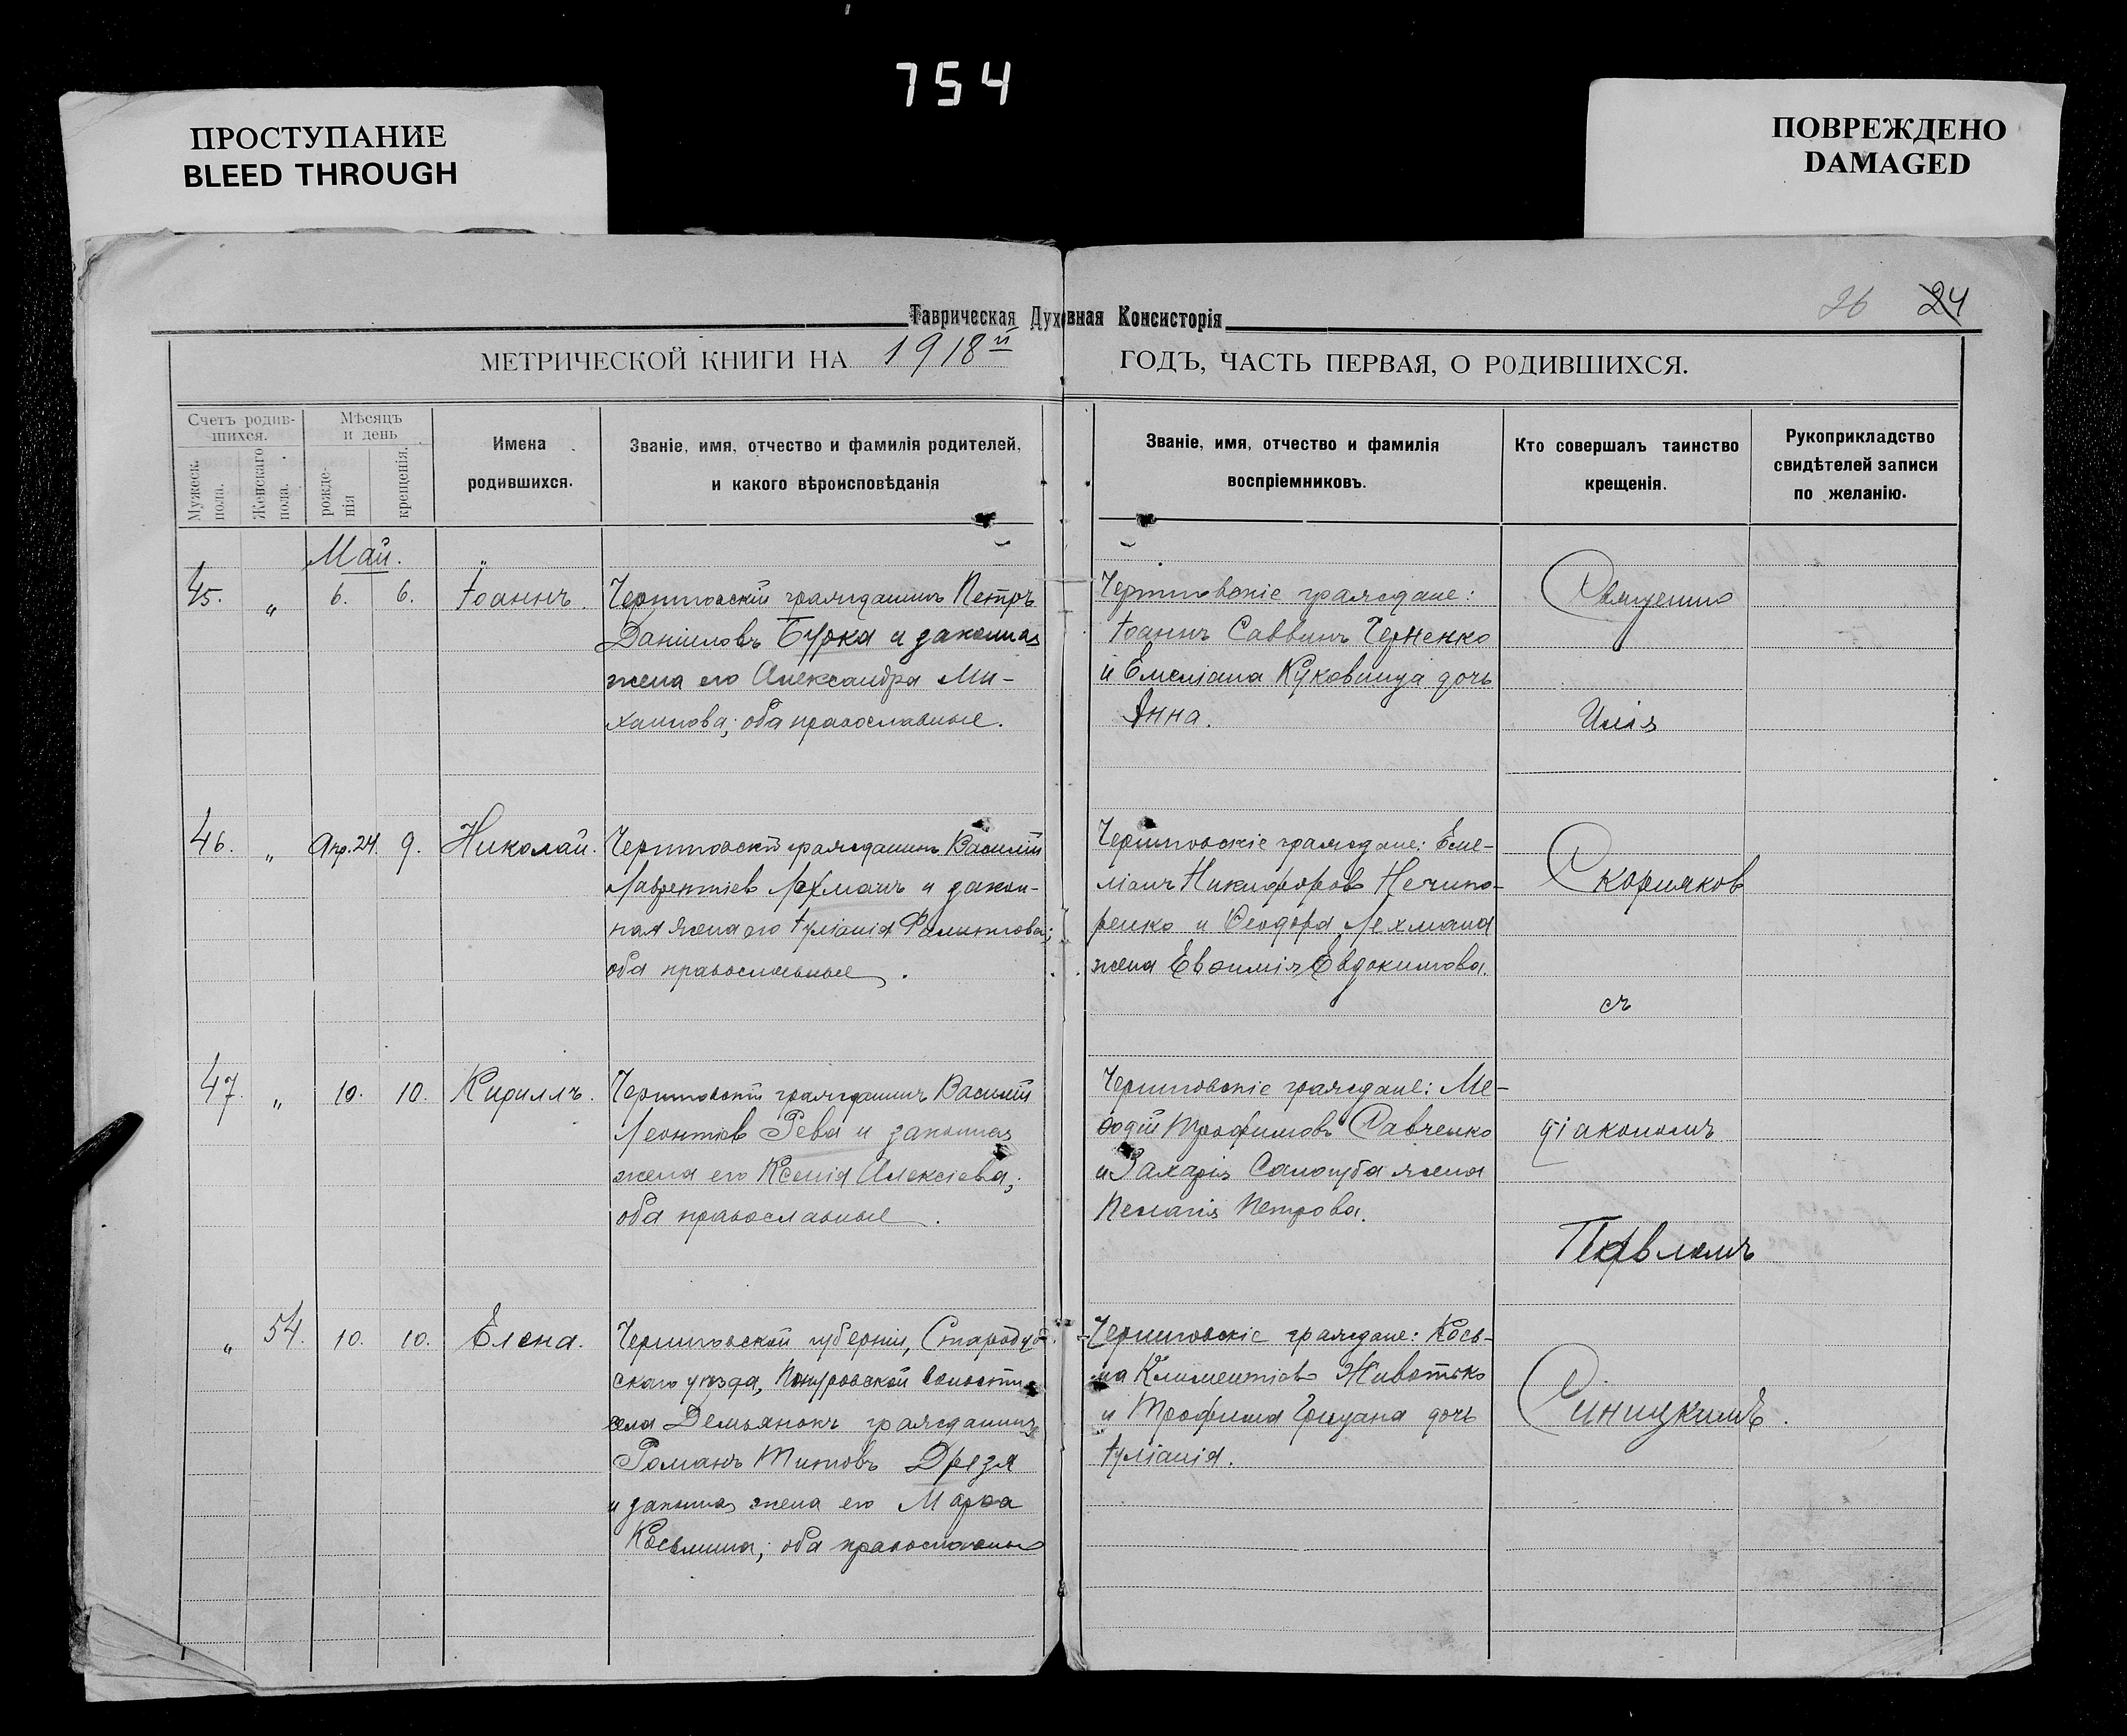 754
ПРОСТУПАНИЕ
BLEED THROUGH
ПОВРЕЖДЕНО
DAMAGED
Таврическая Духовная Консисторія
26 24
МЕТРИЧЕСКОЙ КНИГИ НА 1918й ГОДЪ, ЧАСТЬ ПЕРВАЯ, О РОДИВШИХСЯ.
Счетъ родив-
шихся.
Мужеск.
пола.
Женскаго
пола.
Мѣсяцъ
и день
рожде-
нія
крещенія.
Имена
родившихся.
Званіе, имя, отчество и фамилія родителей,
и какого вѣроисповѣданія
Званіе, имя, отчество и фамилія
воспріемниковъ.
Кто совершалъ таинство
крещенія.
Рукоприкладство
свидѣтелей записи
по желанію.
Май.
45. „ 6. 6. Іоаннъ.
Черниговскій гражданинъ Петръ
Даніиловъ Бурка и законная
жена его Александра Ми-
хаилова; оба православные.
Черниговскіе граждане:
Іоаннъ Саввинъ Черненко
и Емеліана Куковица дочь
Анна.
46. „ Апр. 24. 9. Николай.
Черниговскій гражданинъ Василій
Лаврентіевъ Лехманъ и закон-
ная жена его Іуліанія Филиппова;
оба православные.
Черниговскіе граждане: Еме-
ліанъ Никифоровъ Нечипо-
ренко и Ѳеодора Лехмана
жена Евѳимія Евдокимова.
47. „ 10. 10. Кириллъ.
Черниговскій гражданинъ Василій
Леонтіевъ Рева и законная
жена его Ксенія Алексіева;
оба православные.
Черниговскіе граждане: Ме-
ѳодій Трофимовъ Савченко
и Захарія Самогуба жена
Пелагія Петрова.
„ 54. 10. 10. Елена.
Черниговской губерніи, Стародуб-
скаго уѣзда, Понуровской волости
села Демьянокъ гражданинъ
Романъ Титовъ Дрезя
и законная жена его Марѳа
Косьмина; оба православные
Черниговскіе граждане: Кось-
ма Климентіевъ Животько
и Трофима Грицана дочь
Іуліанія.
Священно
Илія
Скорняков
съ
діакономъ
Павломъ
Синицкимъ.